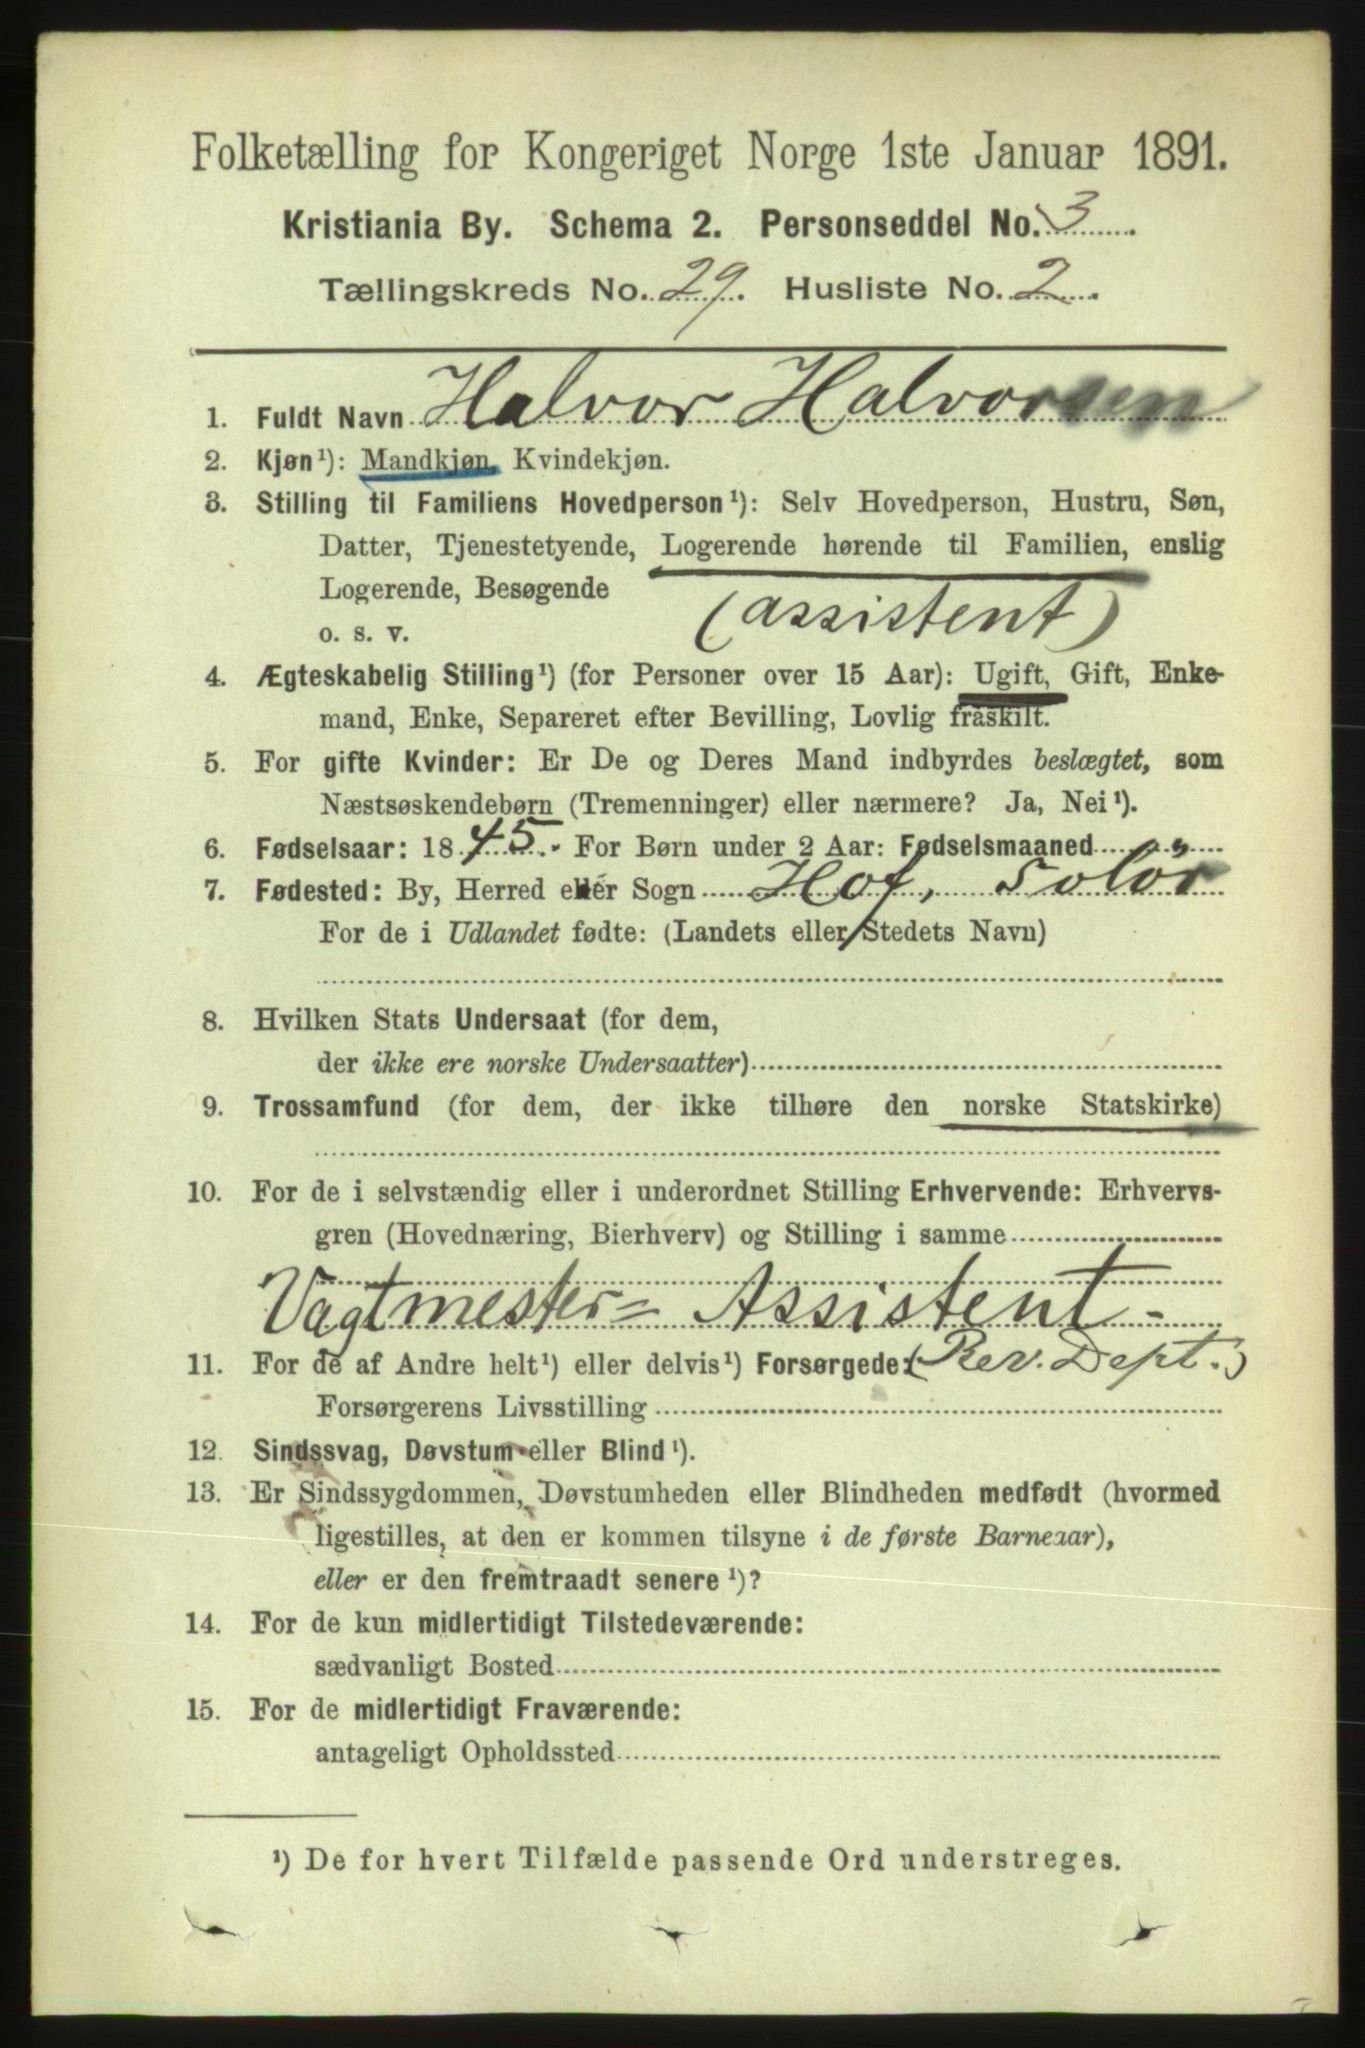 Folketælling for Kongeriget Norge 1ste Januar 1891.
Kristiania By. Schema 2. Personseddel No. 3
Tællingskreds No. 29. Husliste No. 2
1. Fuldt Navn Halvor Halvorsen
2. Kjøn¹): Mandkjøn, Kvindekjøn.
3. Stilling til Familiens Hovedperson¹): Selv Hovedperson, Hustru, Søn,
Datter, Tjenestetyende, Logerende hørende til Familien, enslig
Logerende, Besøgende
o. s. v. (assistent)
4. Ægteskabelig Stilling¹) (for Personer over 15 Aar): Ugift, Gift, Enke-
mand, Enke, Separeret efter Bevilling, Lovlig fraskilt.
5. For gifte Kvinder: Er De og Deres Mand indbyrdes beslægtet, som
Næstsøskendebørn (Tremenninger) eller nærmere? Ja, Nei¹).
6. Fødselsaar: 1845. For Børn under 2 Aar: Fødselsmaaned
7. Fødested: By, Herred eller Sogn Hof, Solör
For de i Udlandet fødte: (Landets eller Stedets Navn)
8. Hvilken Stats Undersaat (for dem,
der ikke ere norske Undersaatter)
9. Trossamfund (for dem, der ikke tilhøre den norske Statskirke)
10. For de i selvstændig eller i underordnet Stilling Erhvervende: Erhvervs-
gren (Hovednæring, Bierhverv) og Stilling i samme
Vagtmester= Assistent -
11. For de af Andre helt¹) eller delvis¹) Forsørgede: (Rev. Dept.)
Forsørgerens Livsstilling
12. Sindssvag, Døvstum eller Blind¹).
13. Er Sindssygdommen, Døvstumheden eller Blindheden medfødt (hvormed
ligestilles, at den er kommen tilsyne i de første Barneaar),
eller er den fremtraadt senere¹)?
14. For de kun midlertidigt Tilstedeværende:
sædvanligt Bosted
15. For de midlertidigt Fraværende:
antageligt Opholdssted
¹) De for hvert Tilfælde passende Ord understreges.